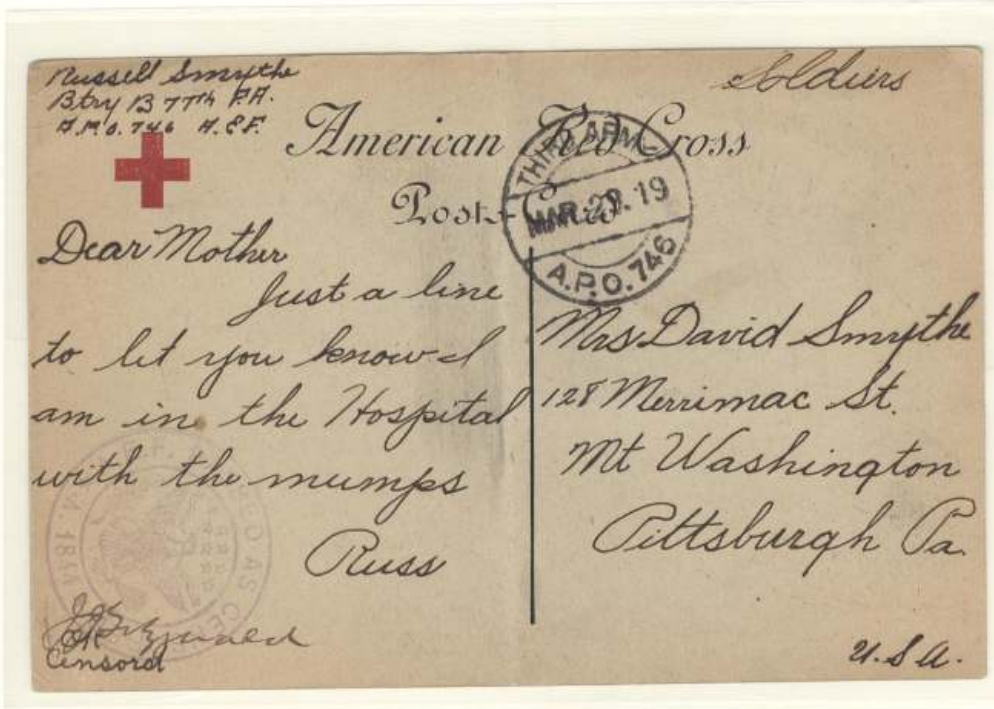 Russell Smythe
Btry B 77th F.A.
A.P.O. 746 A.E.F.
Soldiers
American Red Cross
Post Card
THIRD ARMY
MAR. 29. 19
A.P.O. 746
Dear Mother
Just a line
to let you know I
am in the Hospital
with the mumps
Russ
Mrs David Smythe
128 Merrimac St.
Mt Washington
Pittsburgh Pa.
U.S.A.
J Fitzgerald
OK
Censord